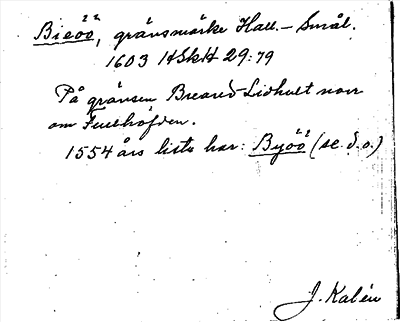 Bieöö, gränsmärke Hall.- Smål.
1603 HSkH 29:79
På gränsen Breared-Lidhult norr
om Fulhöfden.
1554 års lista har: Byöö (se d.o.)
J. Kalén